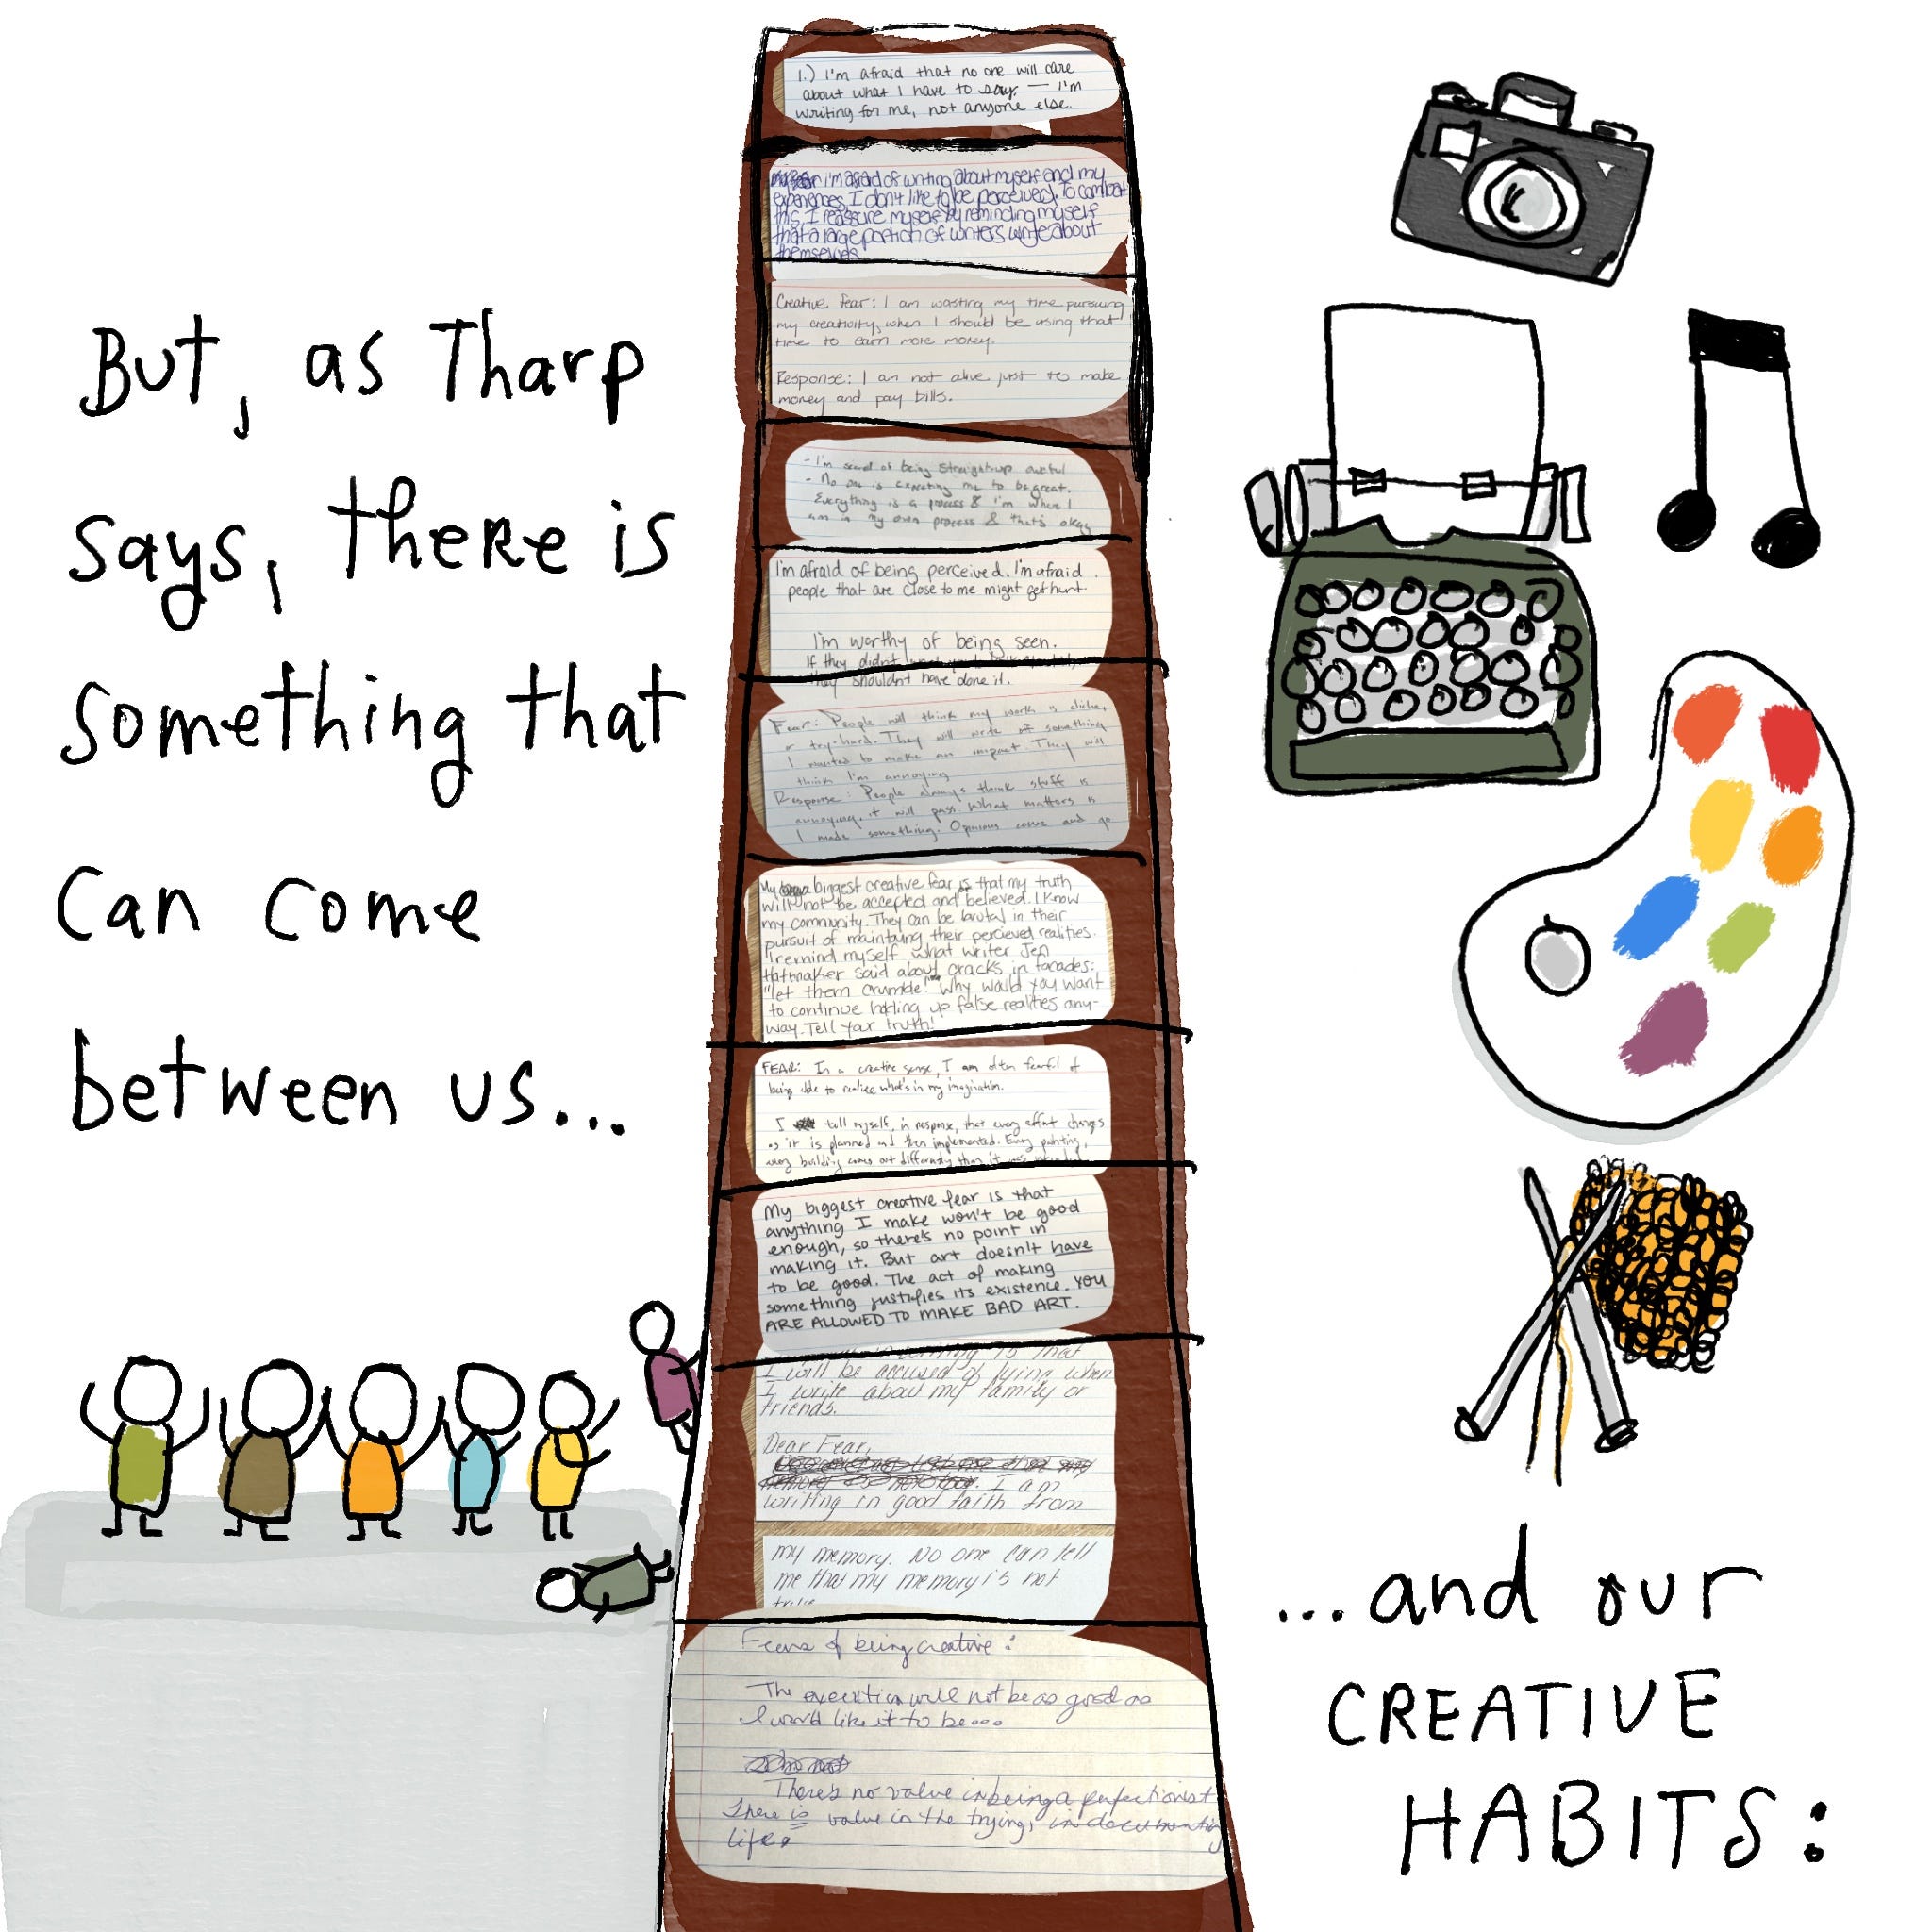 But, as Tharp
says, there is
something that
can come
between us...
1.) I'm afraid that no one will care
about what I have to say. — I'm
writing for me, not anyone else.
i'm afraid of writing about myself and my
experiences. I don't like to be perceived. To combat
this, I reassure myself by reminding myself
that a large portion of writers write about
themselves.
Creative fear: I am wasting my time pursuing
my creativity, when I should be using that
time to earn more money.
Response: I am not alive just to make
money and pay bills.
- I'm scared of being straight-up awful
- No one is expecting me to be great.
Everything is a process & I'm where I
am in my own process & that's okay
I'm afraid of being perceived. I'm afraid
people that are close to me might get hurt.
I'm worthy of being seen.
If they didn't
they shouldn't have done it.
Fear: People will think my work is cliche,
or try-hard. They will write off something
I wanted to make an impact. They will
think I'm annoying
Response: People always think stuff is
annoying, it will pass. What matters is
I made something. Opinions come and go
My biggest creative fear is that my truth
will not be accepted and believed. I know
my community. They can be brutal in their
pursuit of maintaing their percieved realities.
I remind myself what writer Jen
Hatmaker said about cracks in facades:
"let them crumble!" Why would you want
to continue holding up false realities any-
way. Tell your truth!
FEAR: In a creative sense, I am often fearful of
being able to realize what's in my imagination.
I tell myself, in response, that every effort changes
as it is planned and then implemented. Every painting,
every building comes out differently than it was intended.
My biggest creative fear is that
anything I make won't be good
enough, so there's no point in
making it. But art doesn't have
to be good. The act of making
something justifies its existence. YOU
ARE ALLOWED TO MAKE BAD ART.
is that
I will be accused of lying when
I write about my family or
friends.
Dear Fear,
I am
writing in good faith from
my memory. No one can tell
me that my memory is not
true
Fears of being creative:
The execution will not be as good as
I would like it to be...
There's no value in being a perfectionist
There is value in the trying, in documenting
life.
...and our
CREATIVE
HABITS: